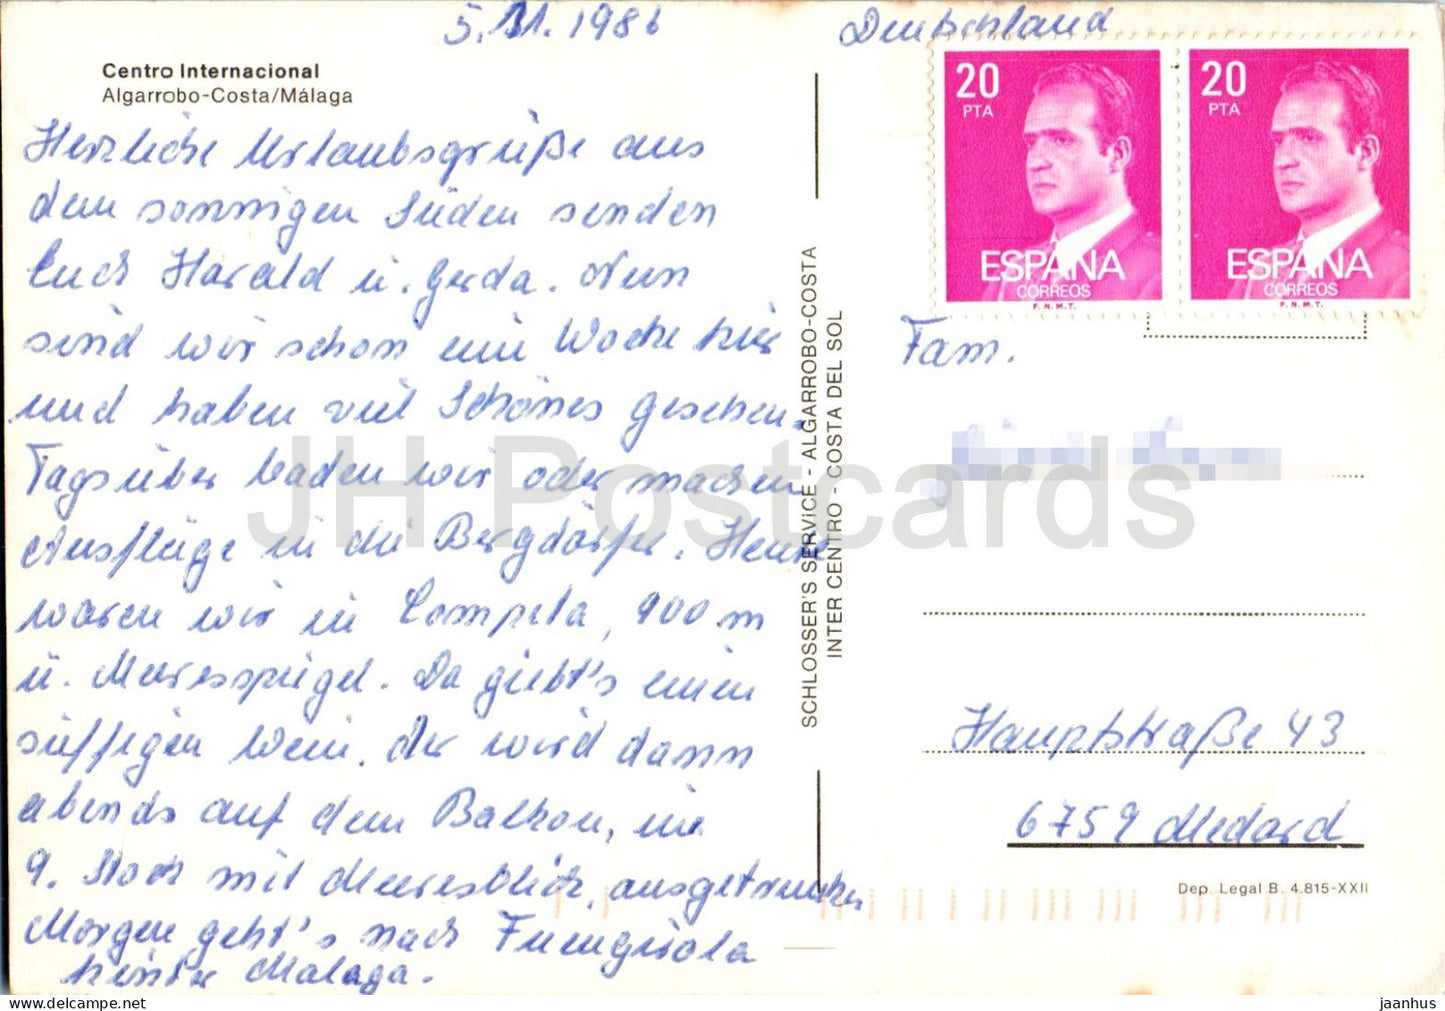 5.11.1986
Deutschland
Centro Internacional
Algarrobo-Costa/Málaga
Herzliche Urlaubsgrüße aus
dem sonnigen Süden senden
Euch Harald u. Gerda. Nun
sind wir schon eine Woche hier
und haben viel Schönes gesehen.
Tagsüber baden wir oder machen
Ausflüge in die Bergdörfer. Heute
waren wir in Competa, 900 m
ü. Meeresspiegel. Da giebt's einen
süffigen Wein. Der wird dann
abends auf dem Balkon, im
9. Stock mit Meeresblick, ausgetrunken
Morgen geht's nach Fuengirola
hinter Malaga.
SCHLOSSER'S SERVICE - ALGARROBO-COSTA
INTER CENTRO - COSTA DEL SOL
20
PTA
ESPAÑA
CORREOS
F.N.M.T.
20
PTA
ESPAÑA
CORREOS
F.N.M.T.
Fam.
Hauptstraße 43
6759 Medard
Dep. Legal B. 4.815-XXII
JH Postcards
jaanhus